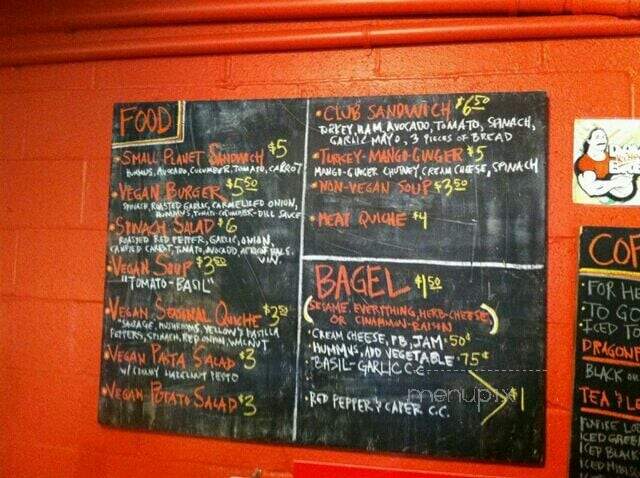 FOOD
• SMALL PLANET SANDWICH $5
HUMMUS, AVOCADO, CUCUMBER, TOMATO, CARROT
• VEGAN BURGER $5.50
SPINACH, ROASTED GARLIC, CARMELIZED ONION,
HUMMUS, TOMATO - CUCUMBER-DILL SAUCE
• SPINACH SALAD $6
ROASTED RED PEPPER, GARLIC, ONION,
CARROT, TOMATO, AVOCADO BALS.
VIN.
• VEGAN SOUP $3.50
"TOMATO - BASIL"
• VEGAN SEASONAL QUICHE $3.50
SAUSAGE, MUSHROOMS, YELLOW
PEPPERS, SPINACH, RED ONION, WALNUT
• VEGAN PASTA SALAD $3
W/ HAZELNUT PESTO
• VEGAN POTATO SALAD $3
• CLUB SANDWICH $6.50
TURKEY, HAM, AVOCADO, TOMATO, SPINACH,
GARLIC MAYO, 3 PIECES OF BREAD
• TURKEY-MANGO-GINGER $5
MANGO-GINGER CHUTNEY, CREAM CHEESE, SPINACH
• NON-VEGAN SOUP $3.50
• MEAT QUICHE $4
BAGEL $1.50
(SESAME, EVERYTHING, HERB-CHEESE,
OR CINAMMIN-RAISIN)
• CREAM CHEESE, PB, JAM • 50¢
• HUMMUS, ADD VEGETABLE • 75¢
• BASIL-GARLIC C.C.
• RED PEPPER & CAPER C.C. $1
menupix
COF
• FOR HE
• TO GO
• ICED TO
DRAGONF
BLACK OR
TEA & LE
ICED GREE
ICED BLACK